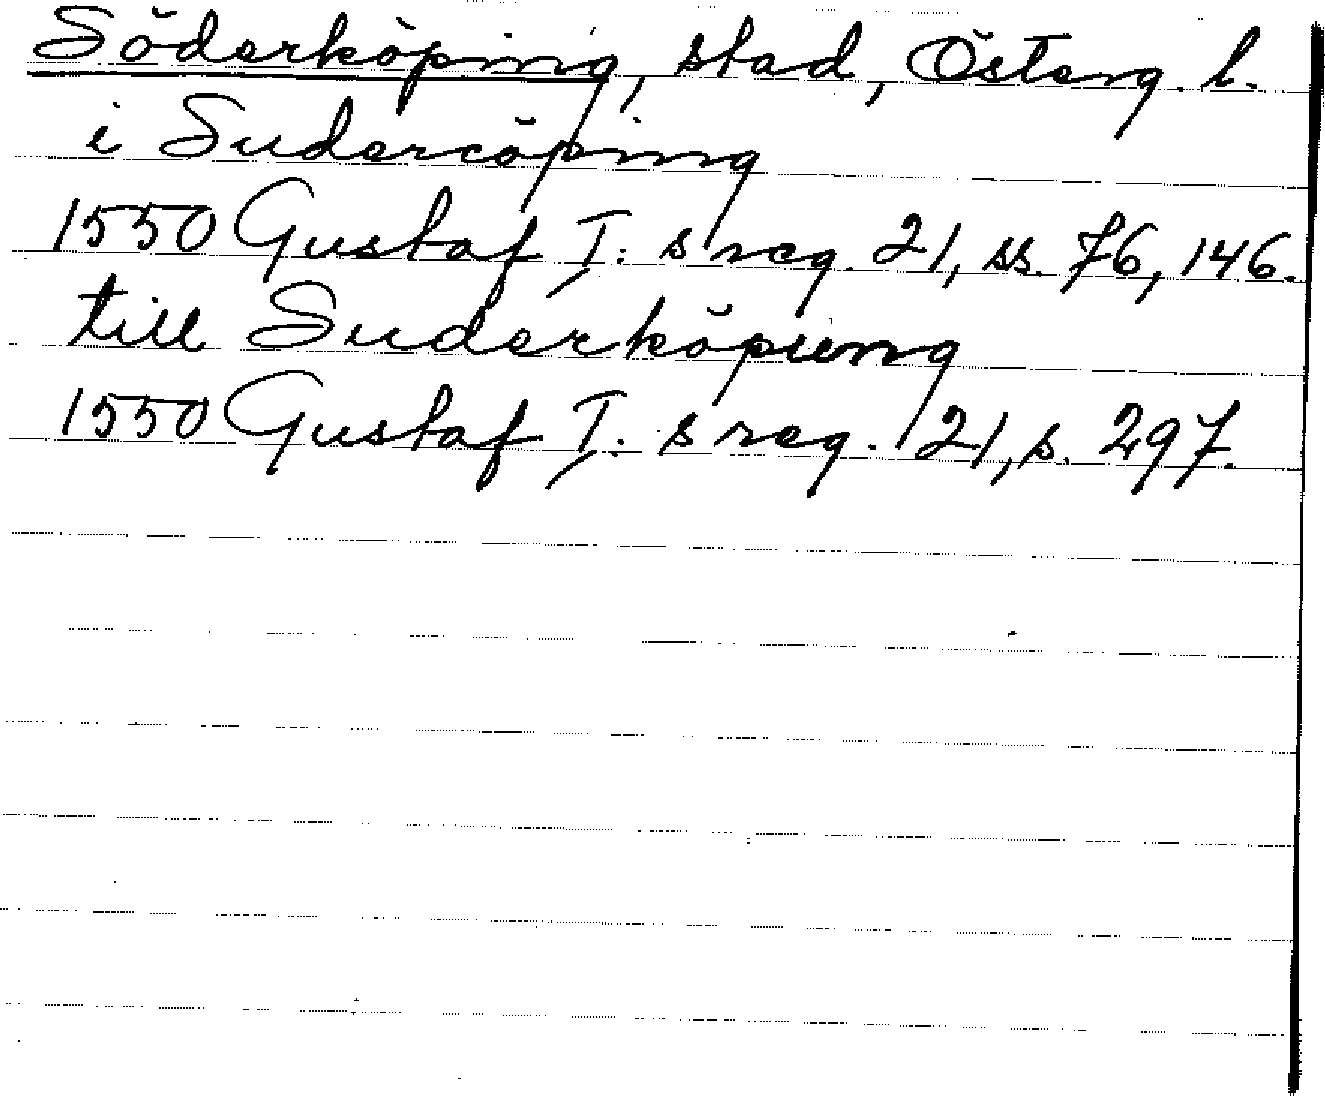 Söderköping, stad, Österg. l.
i Sudercöping
1550 Gustaf I:s reg. 21, ss. 76, 146.
till Suderköpung
1550 Gustaf I:s reg. 21, s. 297.